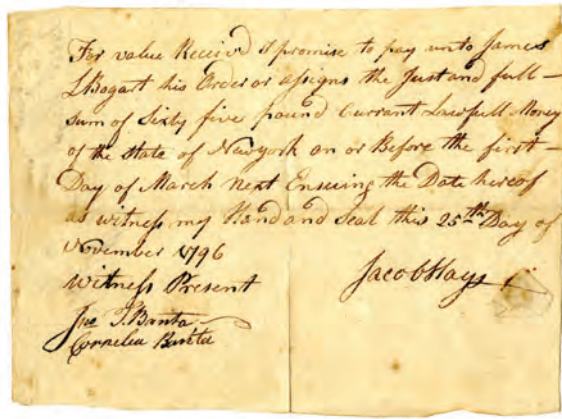 For value Receivd I promise to pay unto James
L Bogart his Order or assigns the Just and full –
sum of Sixty five pound Currant Lawfull Money
of the state of Newyork on or Before the first –
Day of March Next Ensuing the Date hereof
as witness my Hand and Seal this 25th Day of
November 1796
Witness Present
Jacob Hays
J. Banta
Cornelia Banta